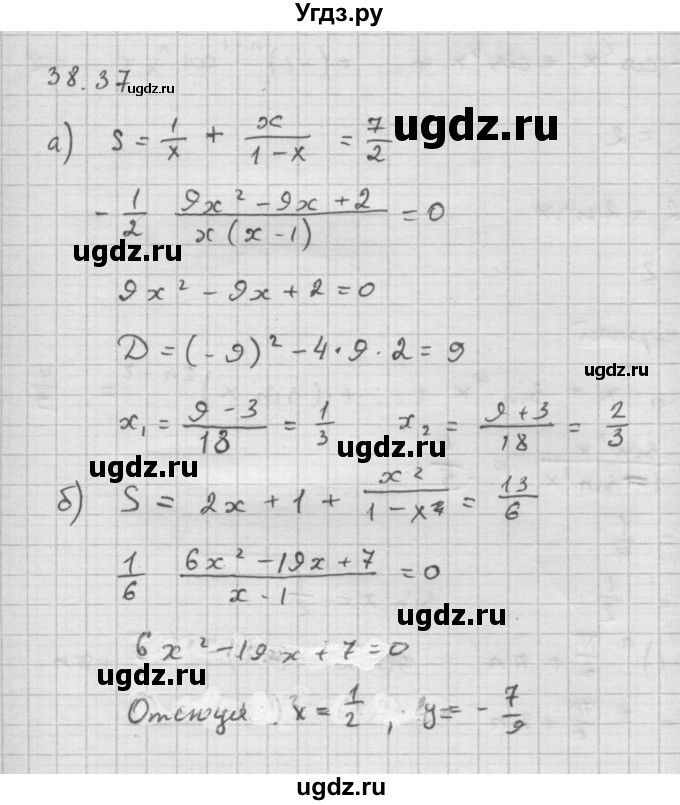 Угdz.ру
38.37
ugdz.ru
а) S = 1/x + x/(1-x) = 7/2
ugdz.ru
- 1/2 (9x² - 9x + 2)/(x(x-1)) = 0
ugdz.ru
9x² - 9x + 2 = 0
D = (-9)² - 4·9·2 = 9
ugdz.ru
x₁ = (9-3)/18 = 1/3 x₂ = (9+3)/18 = 2/3
ugdz.ru
б) S = 2x + 1 + x²/(1-x) = 13/6
1/6 (6x² - 19x + 7)/(x-1) = 0
ugdz.ru
6x² - 19x + 7 = 0
ugdz.ru
Отсюда x = 1/2, y = - 7/9
ugdz.ru
ugdz.ru